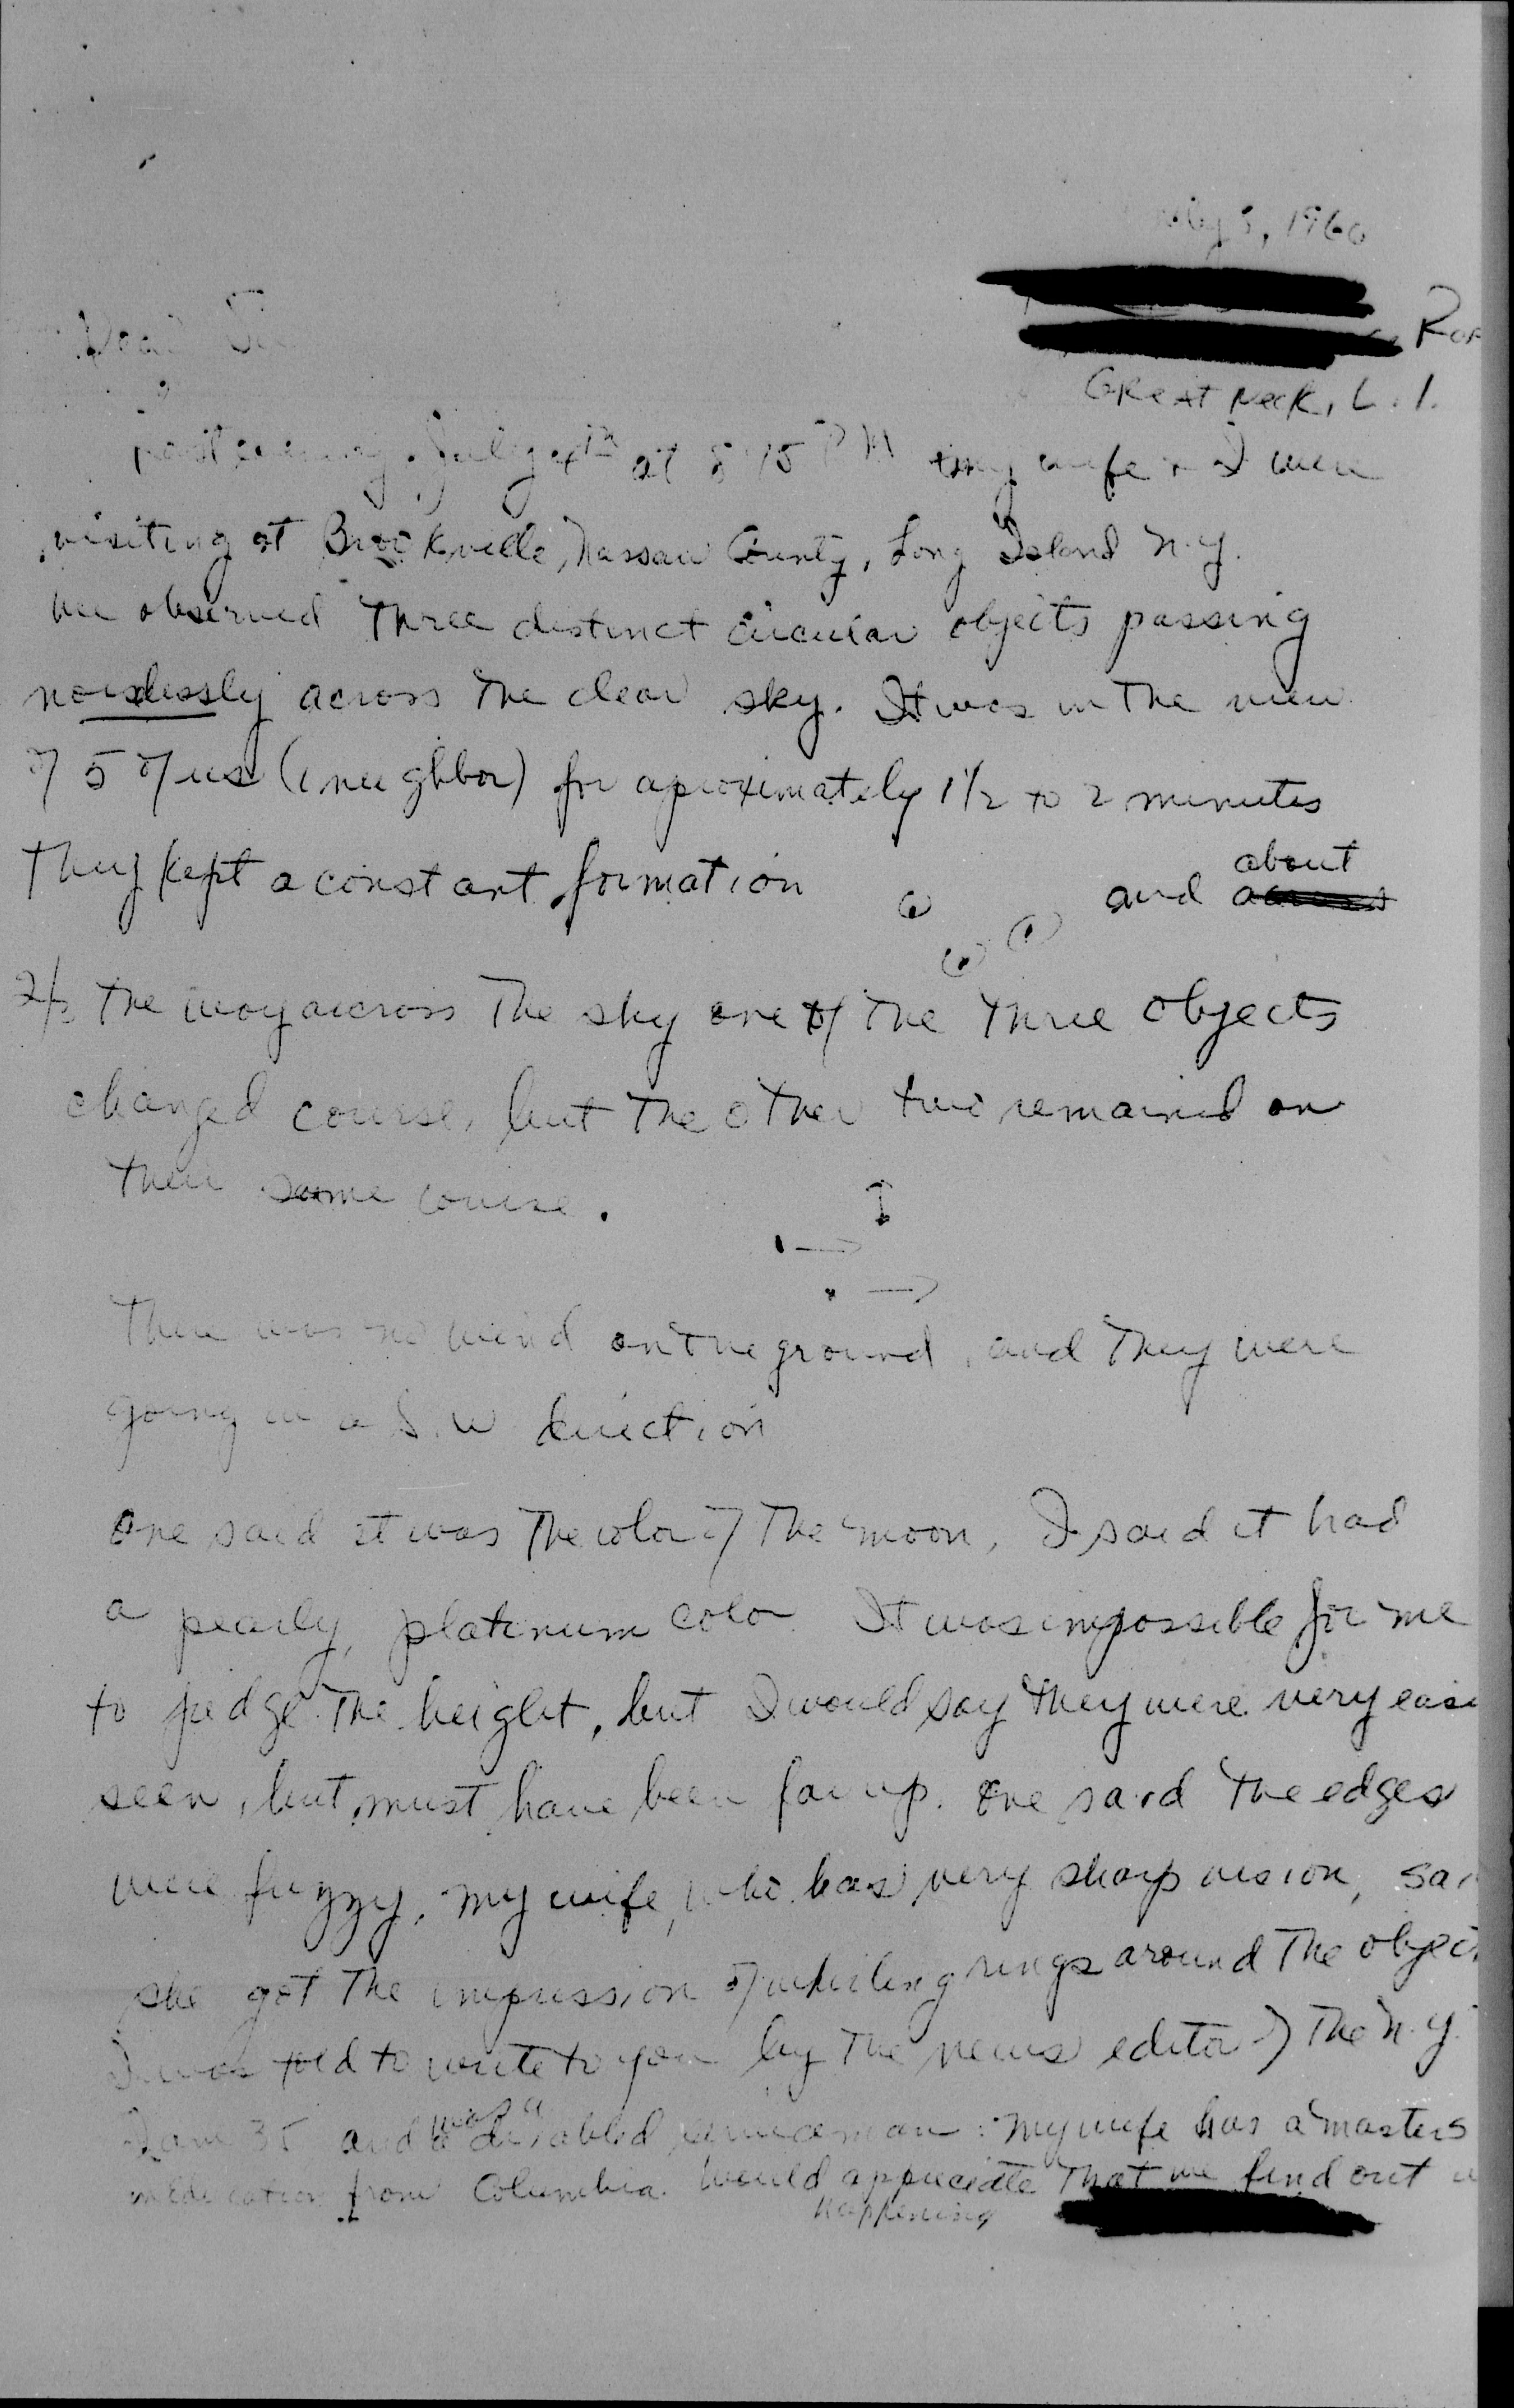 July 5, 1960
Dear Sir
Great Neck, L.I.
evening July 4th at 8:45 PM my wife & I were
visiting at Brookville, Nassau County, Long Island N.Y.
we observed three distinct circular objects passing
noislessly across the clear sky. It was in the view
of 5 of us (1 neighbor) for aproximately 1 1/2 to 2 minutes
They kept a constant formation and about
2/3 the way across the sky one of the three objects
changed course, but the other two remained on
their same course.
There was no wind on the ground, and they were
going in a S.W direction
One said it was the color of the moon, I said it had
a pearly, platinum color. It was impossible for me
to judge the height, but I would say they were very easi
seen, but must have been far up. One said the edges
were fuzzy, my wife, who has very sharp vision, sai
she got the impression of whirling rings around the object
I was told to write to you by the news editor of the N.Y.
I am 35 and was a disabled serviceman. My wife has a masters
in education from Columbia. Would appreciate that we find out
happening